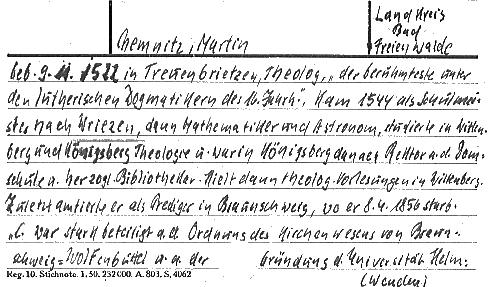 Chemnitz, Martin
Land Kreis
Bad
Freienwalde
geb. 9. 11. 1522 in Treuenbrietzen, Theolog, „der berühmteste unter
den lutherischen Dogmatikern des 16. Jhrh". Kam 1544 als Schulmei-
ster nach Wriezen, dann Mathematiker und Astronom, studierte in Witten-
berg und Königsberg Theologie u. war in Königsberg danach Rektor a. d. Dom-
schule u. herzogl. Bibliothekar. Hielt dann theolog. Vorlesungen in Wittenberg.
Zuletzt amtierte er als Prediger in Braunschweig, wo er 8. 4. 1856 starb.
„C. war stark beteiligt a. d. Ordnung des Kirchenwesens von Braun-
schweig-Wolfenbüttel u. a. der Gründung d. Universität Helm-
(wenden)
Reg. 10. Stichnote. 1. 50. 232 000. A. 803. S. 4062